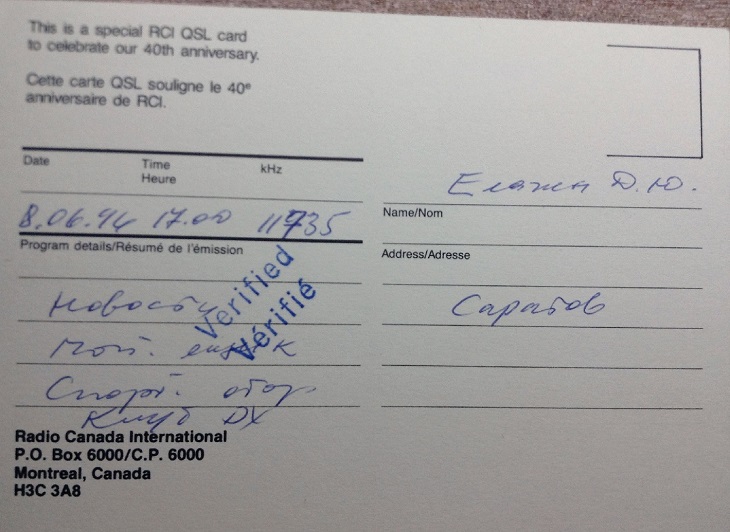 This is a special RCI QSL card
to celebrate our 40th anniversary.
Cette carte QSL souligne le 40e
anniversaire de RCI.
Date
Time
Heure
kHz
8.06.94 17.00 11735
Program details/Résumé de l'émission
Новости
Почт. ящик
Спорт. обозр.
Клуб DX
Verified
Vérifié
Radio Canada International
P.O. Box 6000/C.P. 6000
Montreal, Canada
H3C 3A8
Елагин Д.Ю.
Name/Nom
Address/Adresse
Саратов